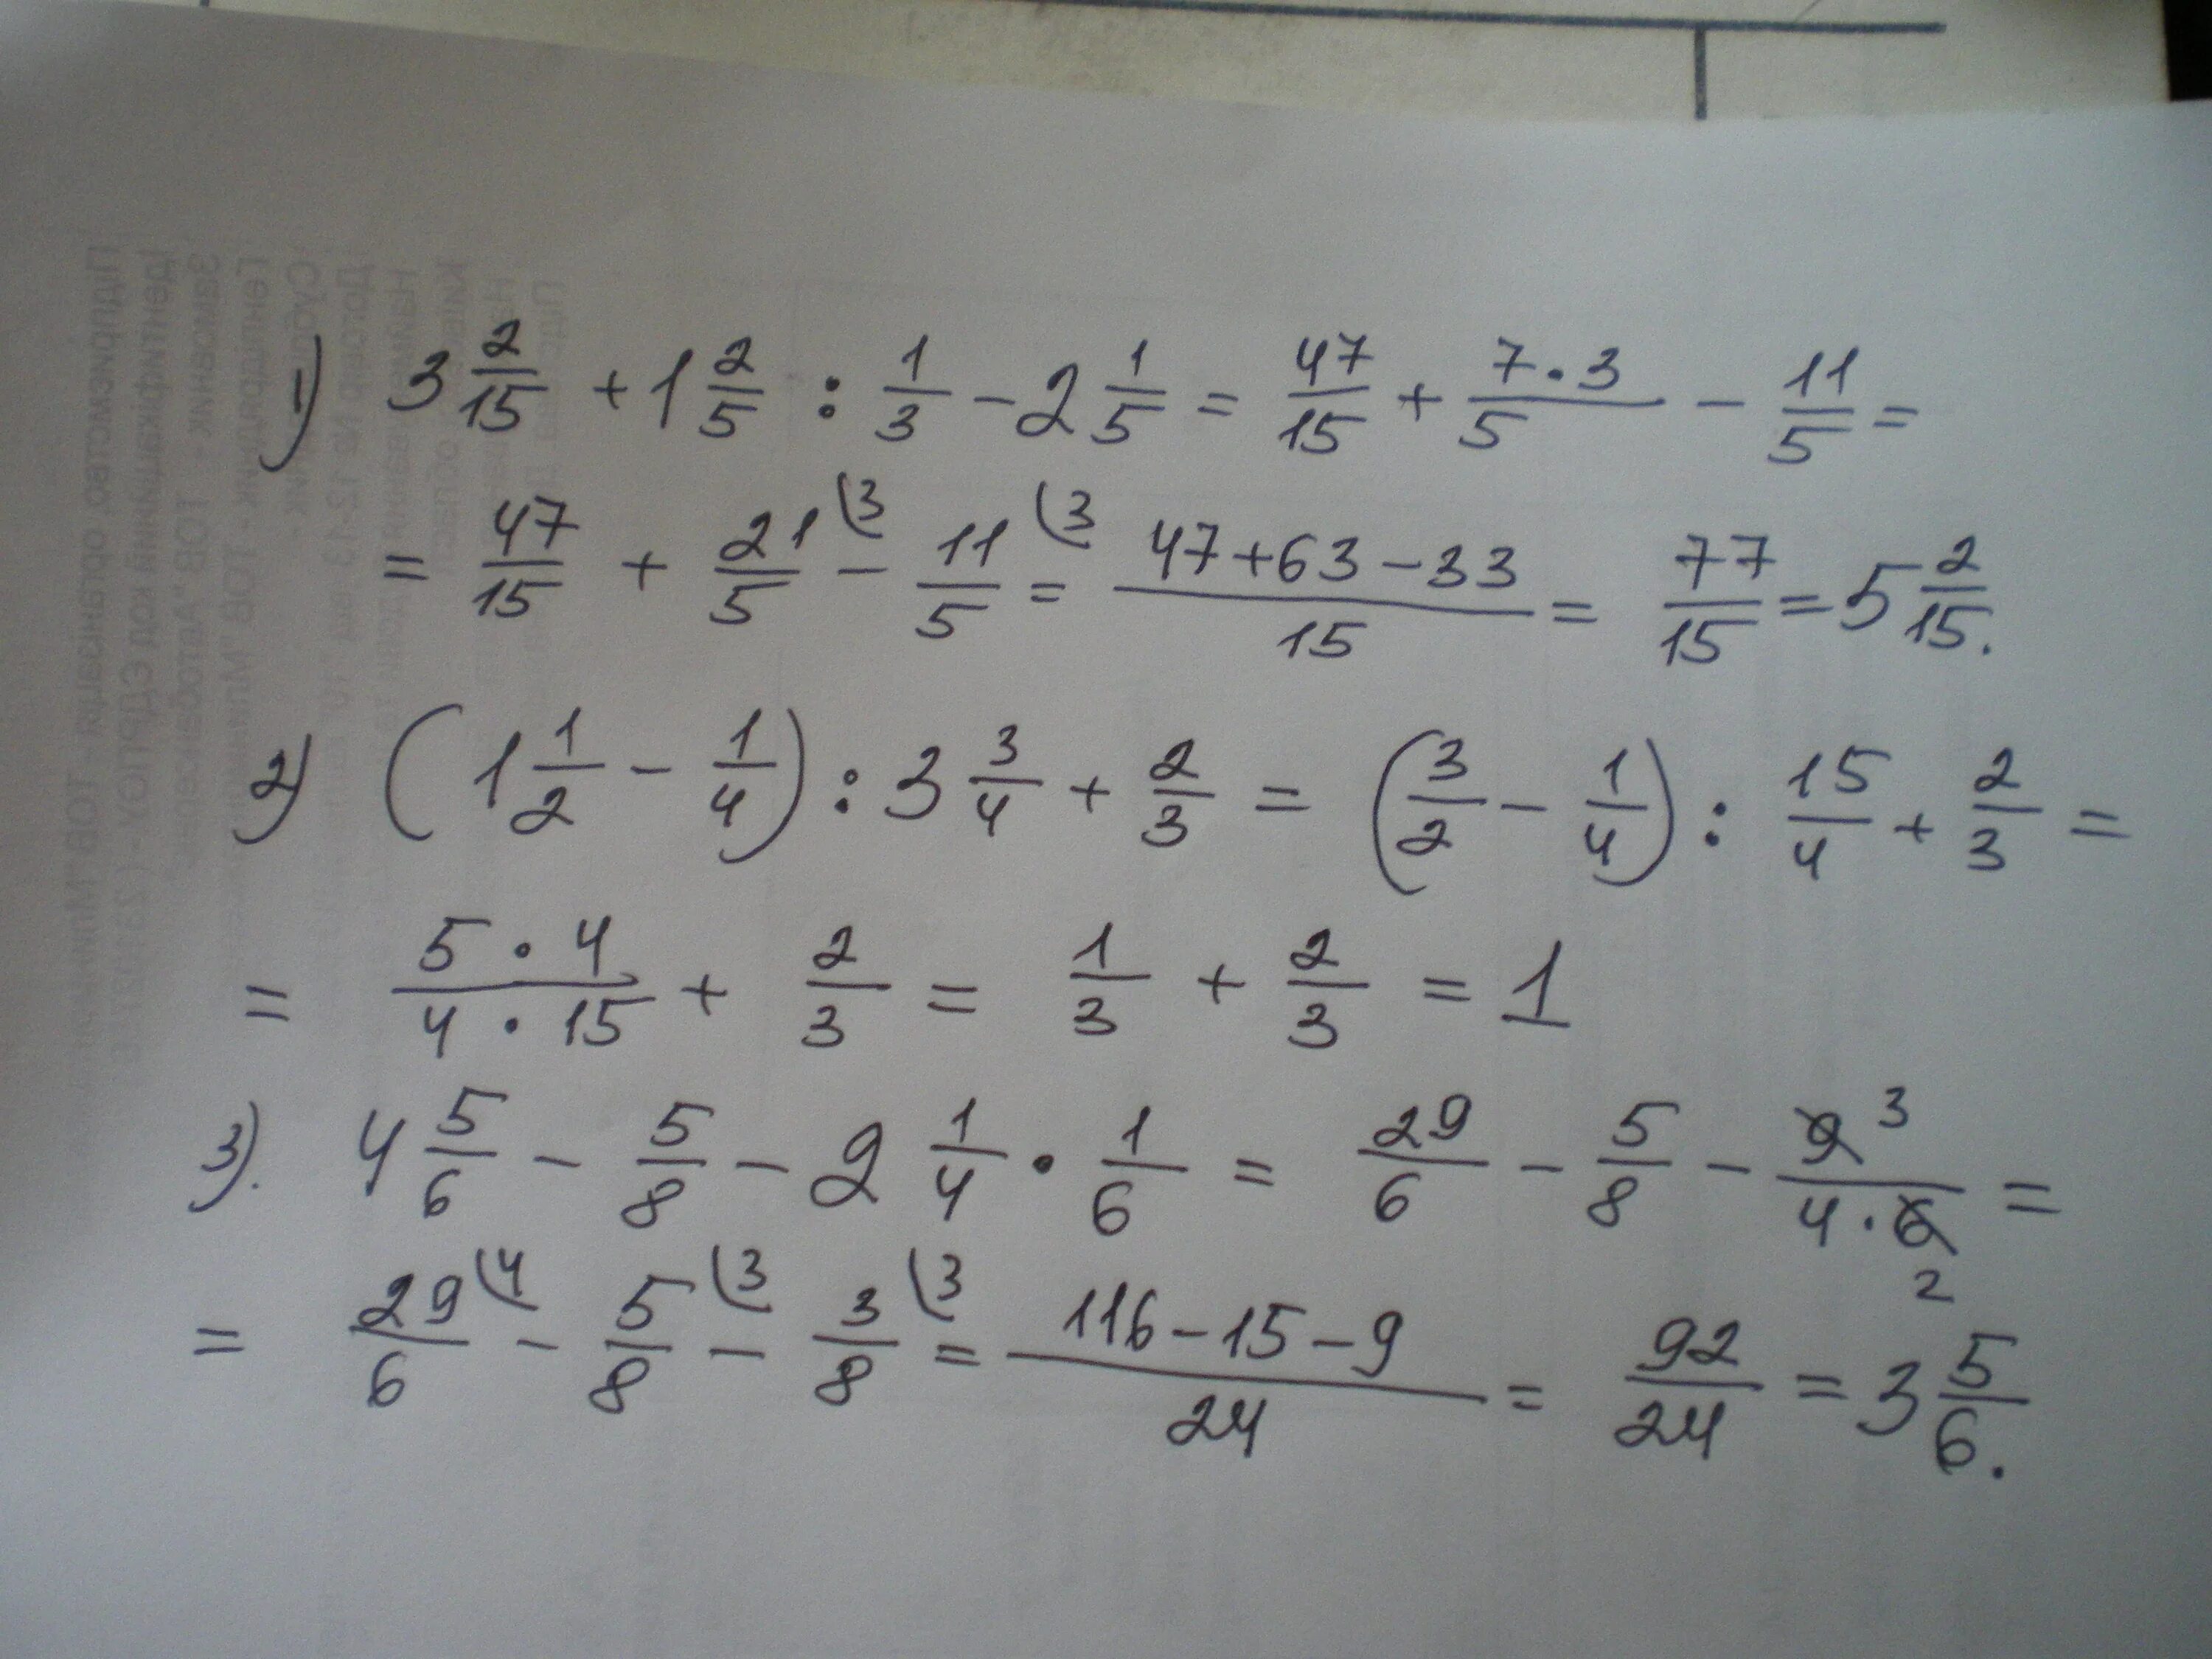 1) 3 2/15 + 1 2/5 : 1/3 - 2 1/5 = 47/15 + 7·3/5 - 11/5 =
= 47/15 + 21/5 (3 - 11/5 (3 = 47+63-33/15 = 77/15 = 5 2/15.
2) (1 1/2 - 1/4) : 3 3/4 + 2/3 = (3/2 - 1/4) : 15/4 + 2/3 =
= 5·4/4·15 + 2/3 = 1/3 + 2/3 = 1
3). 4 5/6 - 5/8 - 2 1/4 · 1/6 = 29/6 - 5/8 - 9 3/4·6 2 =
= 29/6 (4 - 5/8 (3 - 3/8 (3 = 116-15-9/24 = 92/24 = 3 5/6.